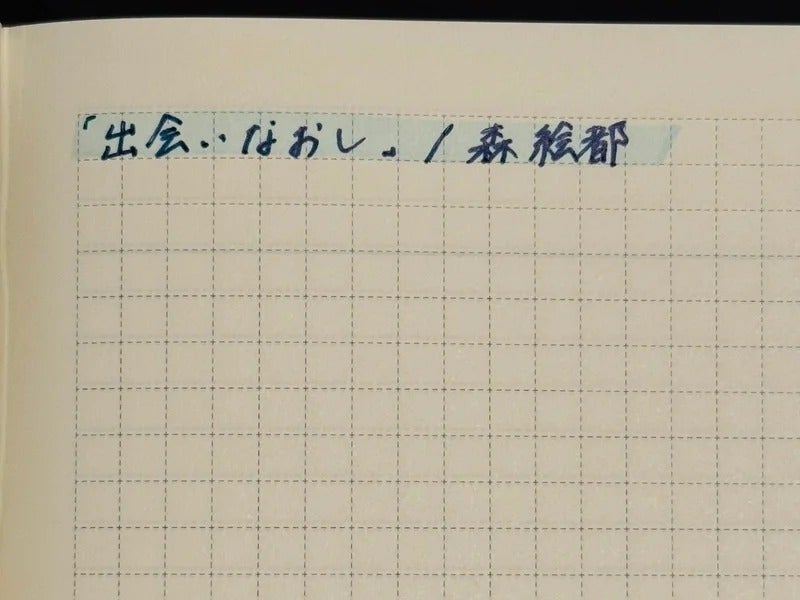 「出会いなおし」/森絵都